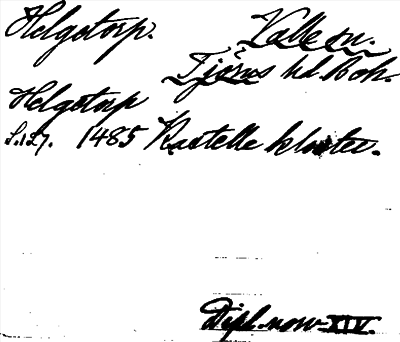 Helgetorp. Valle sn.
Tjörns hd. Boh.
Helgetorp
S.127. 1485 Kastelle kloster.
Dipl. norv. XIV.